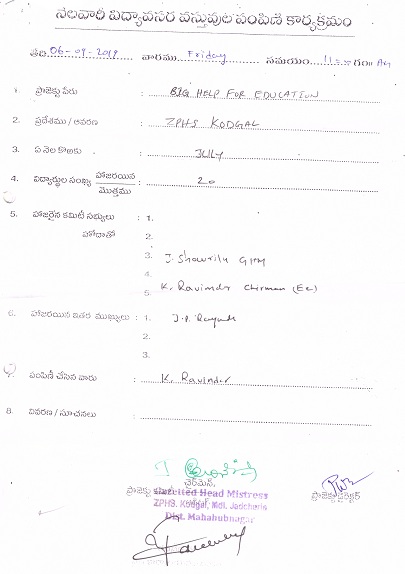 నెలవారీ విద్యావసర వస్తువుల పంపిణి కార్యక్రమం
తేది 06-09-2019 వారము Friday సమయం 11-00 గం॥ AM
1. ప్రాజెక్టు పేరు : BIG HELP FOR EDUCATION
2. ప్రదేశము / ఆవరణ : ZPHS KODGAL
3. ఏ నెల కొఱకు : JULY
4. విద్యార్థుల సంఖ్య హాజరయిన / మొత్తము : 20
5. హాజరైన కమిటీ సభ్యులు : 1.
హోదాతో 2.
3. J. Showrilu GHM
4.
5. K. Ravinder Chirman (Ec)
6. హాజరయిన ఇతర ముఖ్యులు : 1.
2.
3.
7. పంపిణి చేసిన వారు : K. Ravinder
8. వివరణ / సూచనలు :
ఛైర్మెన్,
ప్రాజెక్టు Gazetted Head Mistress ప్రాజెక్టు డైరెక్టర్
ZPHS. Kodgal, Mdl. Jadcherla
Dist. Mahabubnagar